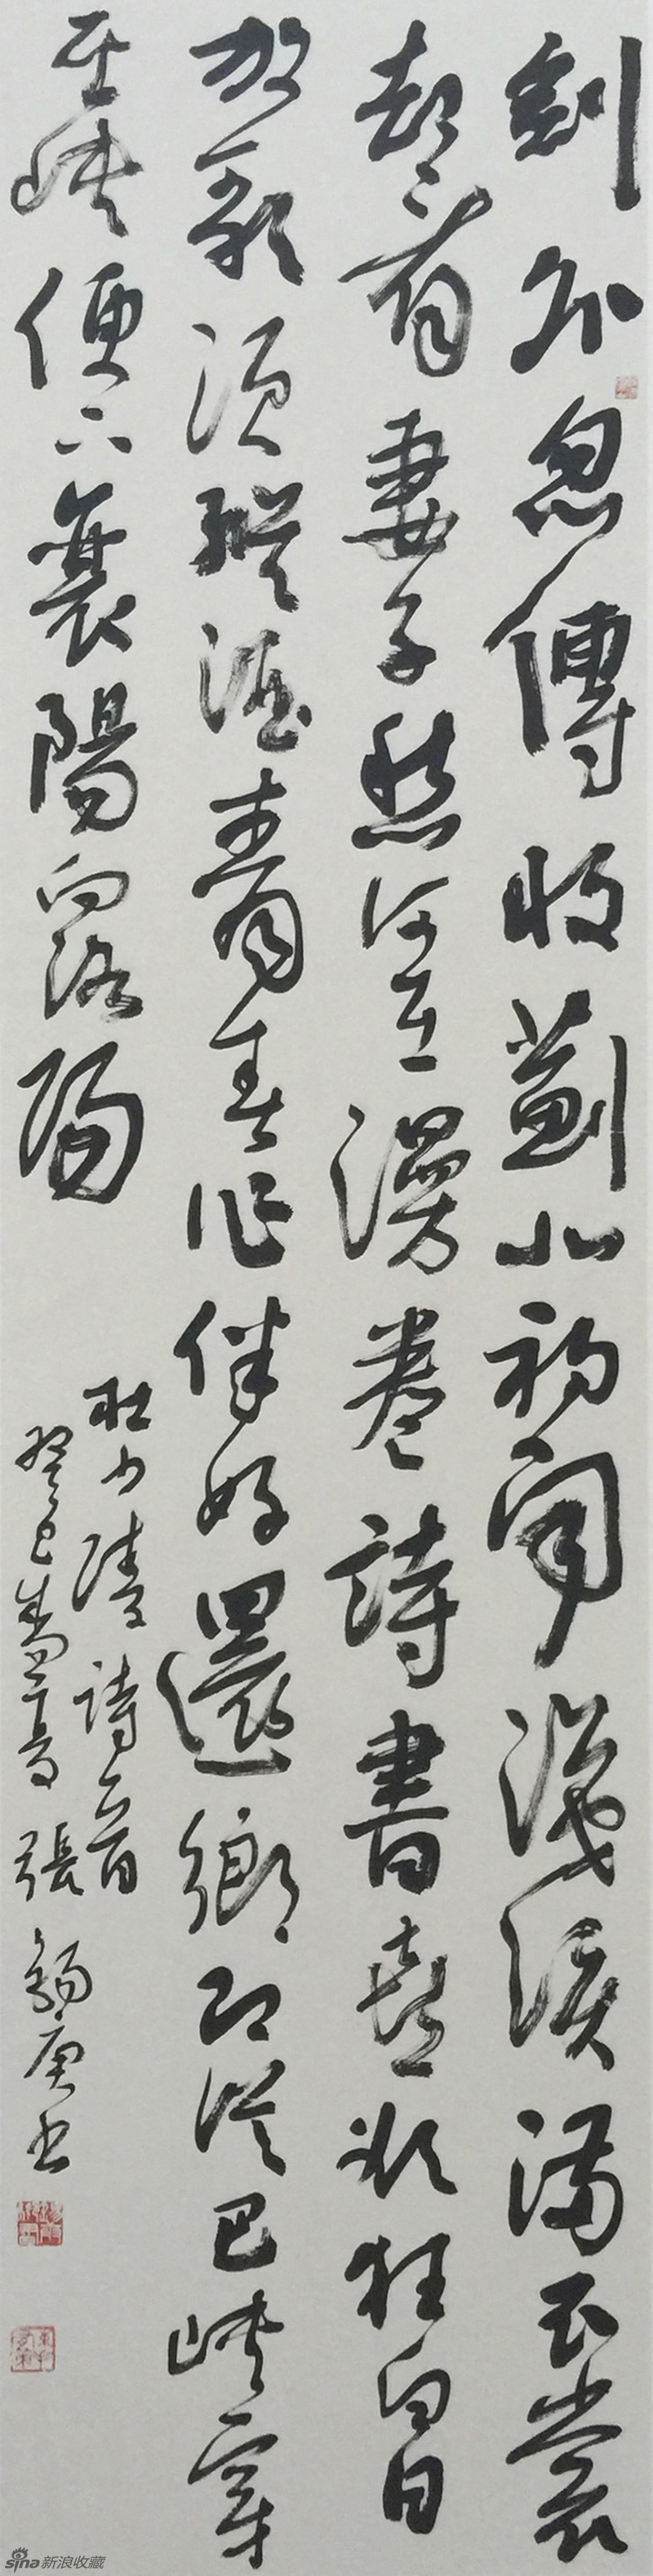 劍外忽傳收薊北初聞涕淚滿衣裳
却看妻子愁何在漫卷詩書喜欲狂白日
放歌須縱酒青春作伴好還鄉即從巴峽穿
巫峽便下襄陽向洛陽
杜少陵詩一首
癸巳春 張錫庚书
sina新浪收藏